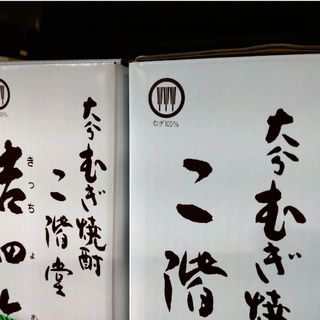 大分むぎ焼酎
二階堂
きっちょむ
吉四
むぎ100%
大分むぎ焼
二階